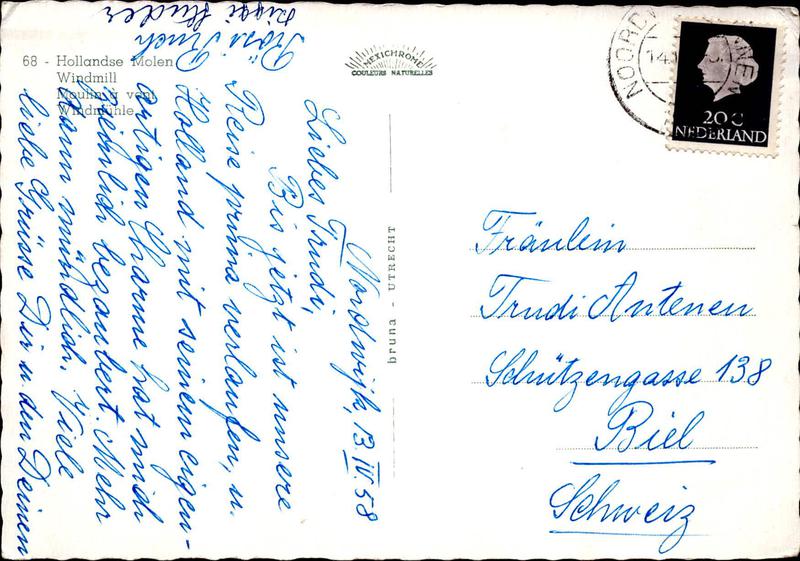 68 - Hollandse Molen
Windmill
Moulin à vent
Windmühle
MEXICHROME
COULEURS NATURELLES
bruna - UTRECHT
NOORD
20 C
NEDERLAND
Nordwijk, 13.IV.58
Liebes Trudi,
Bis jetzt ist unsere
Reise prima verlaufen, u.
Holland mit seinem eigen-
artigen Charme hat mich
reichlich bezaubert. Mehr
dann mündlich. Viele
liebe Grüsse Dir u. den Deinen
Rösi
Fräulein
Trudi Antenen
Schützengasse 138
Biel
Schweiz